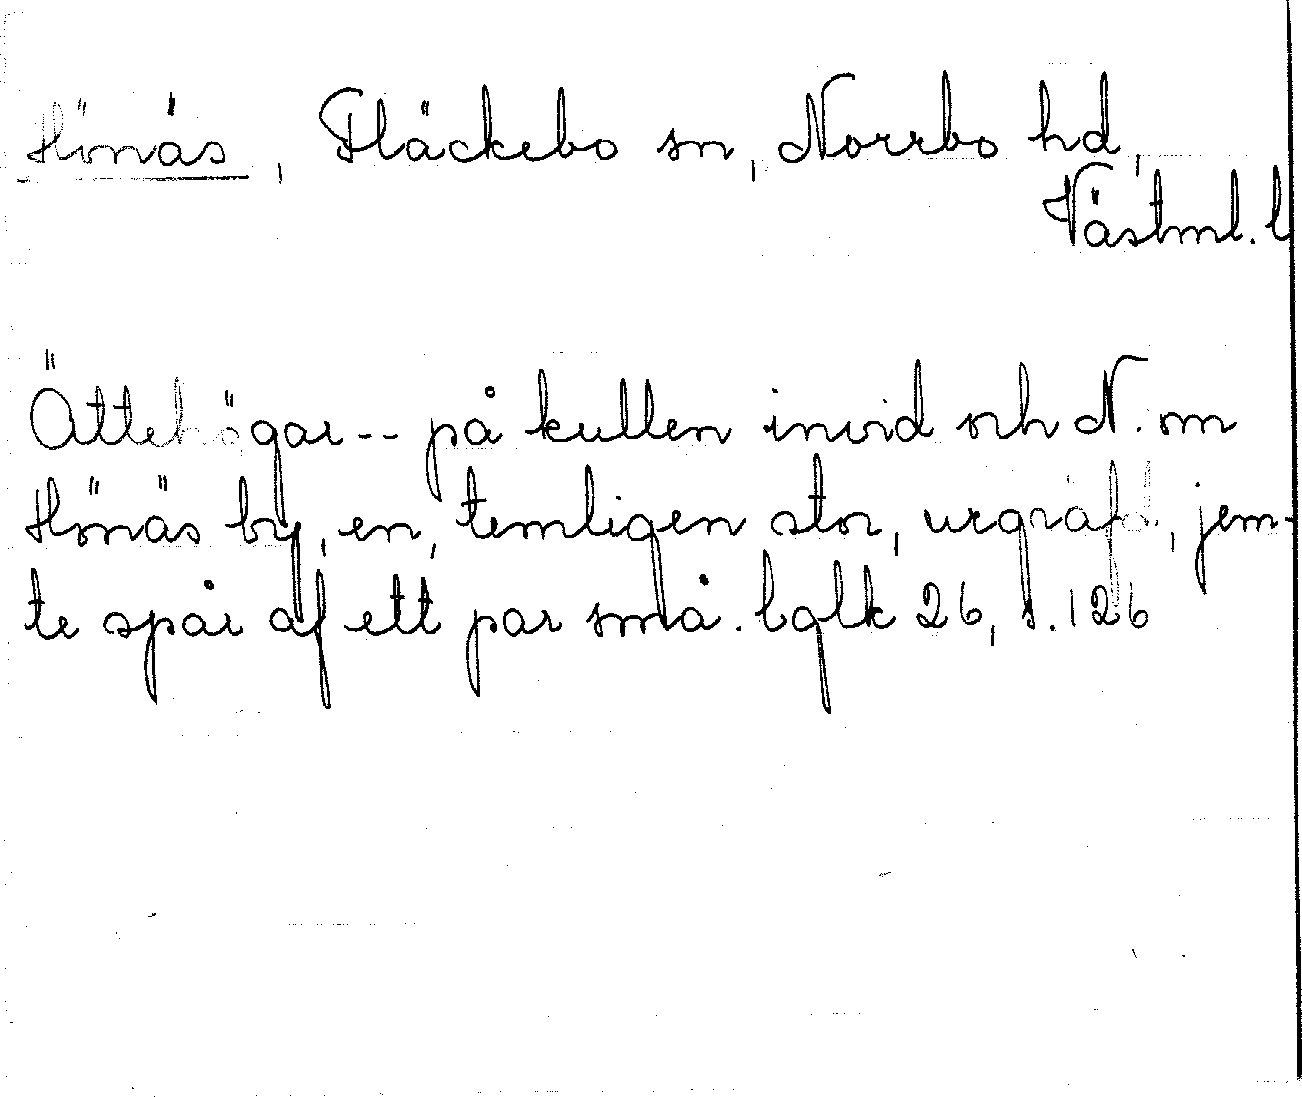 Hönäs, Fläckebo sn, Norrbo hd,
Västml. l
Ättehögar -- på kullen invid och N. om
Hönäs by, en, temligen stor, urgräfd, jem-
te spår af ett par små. bglk 26, s. 126